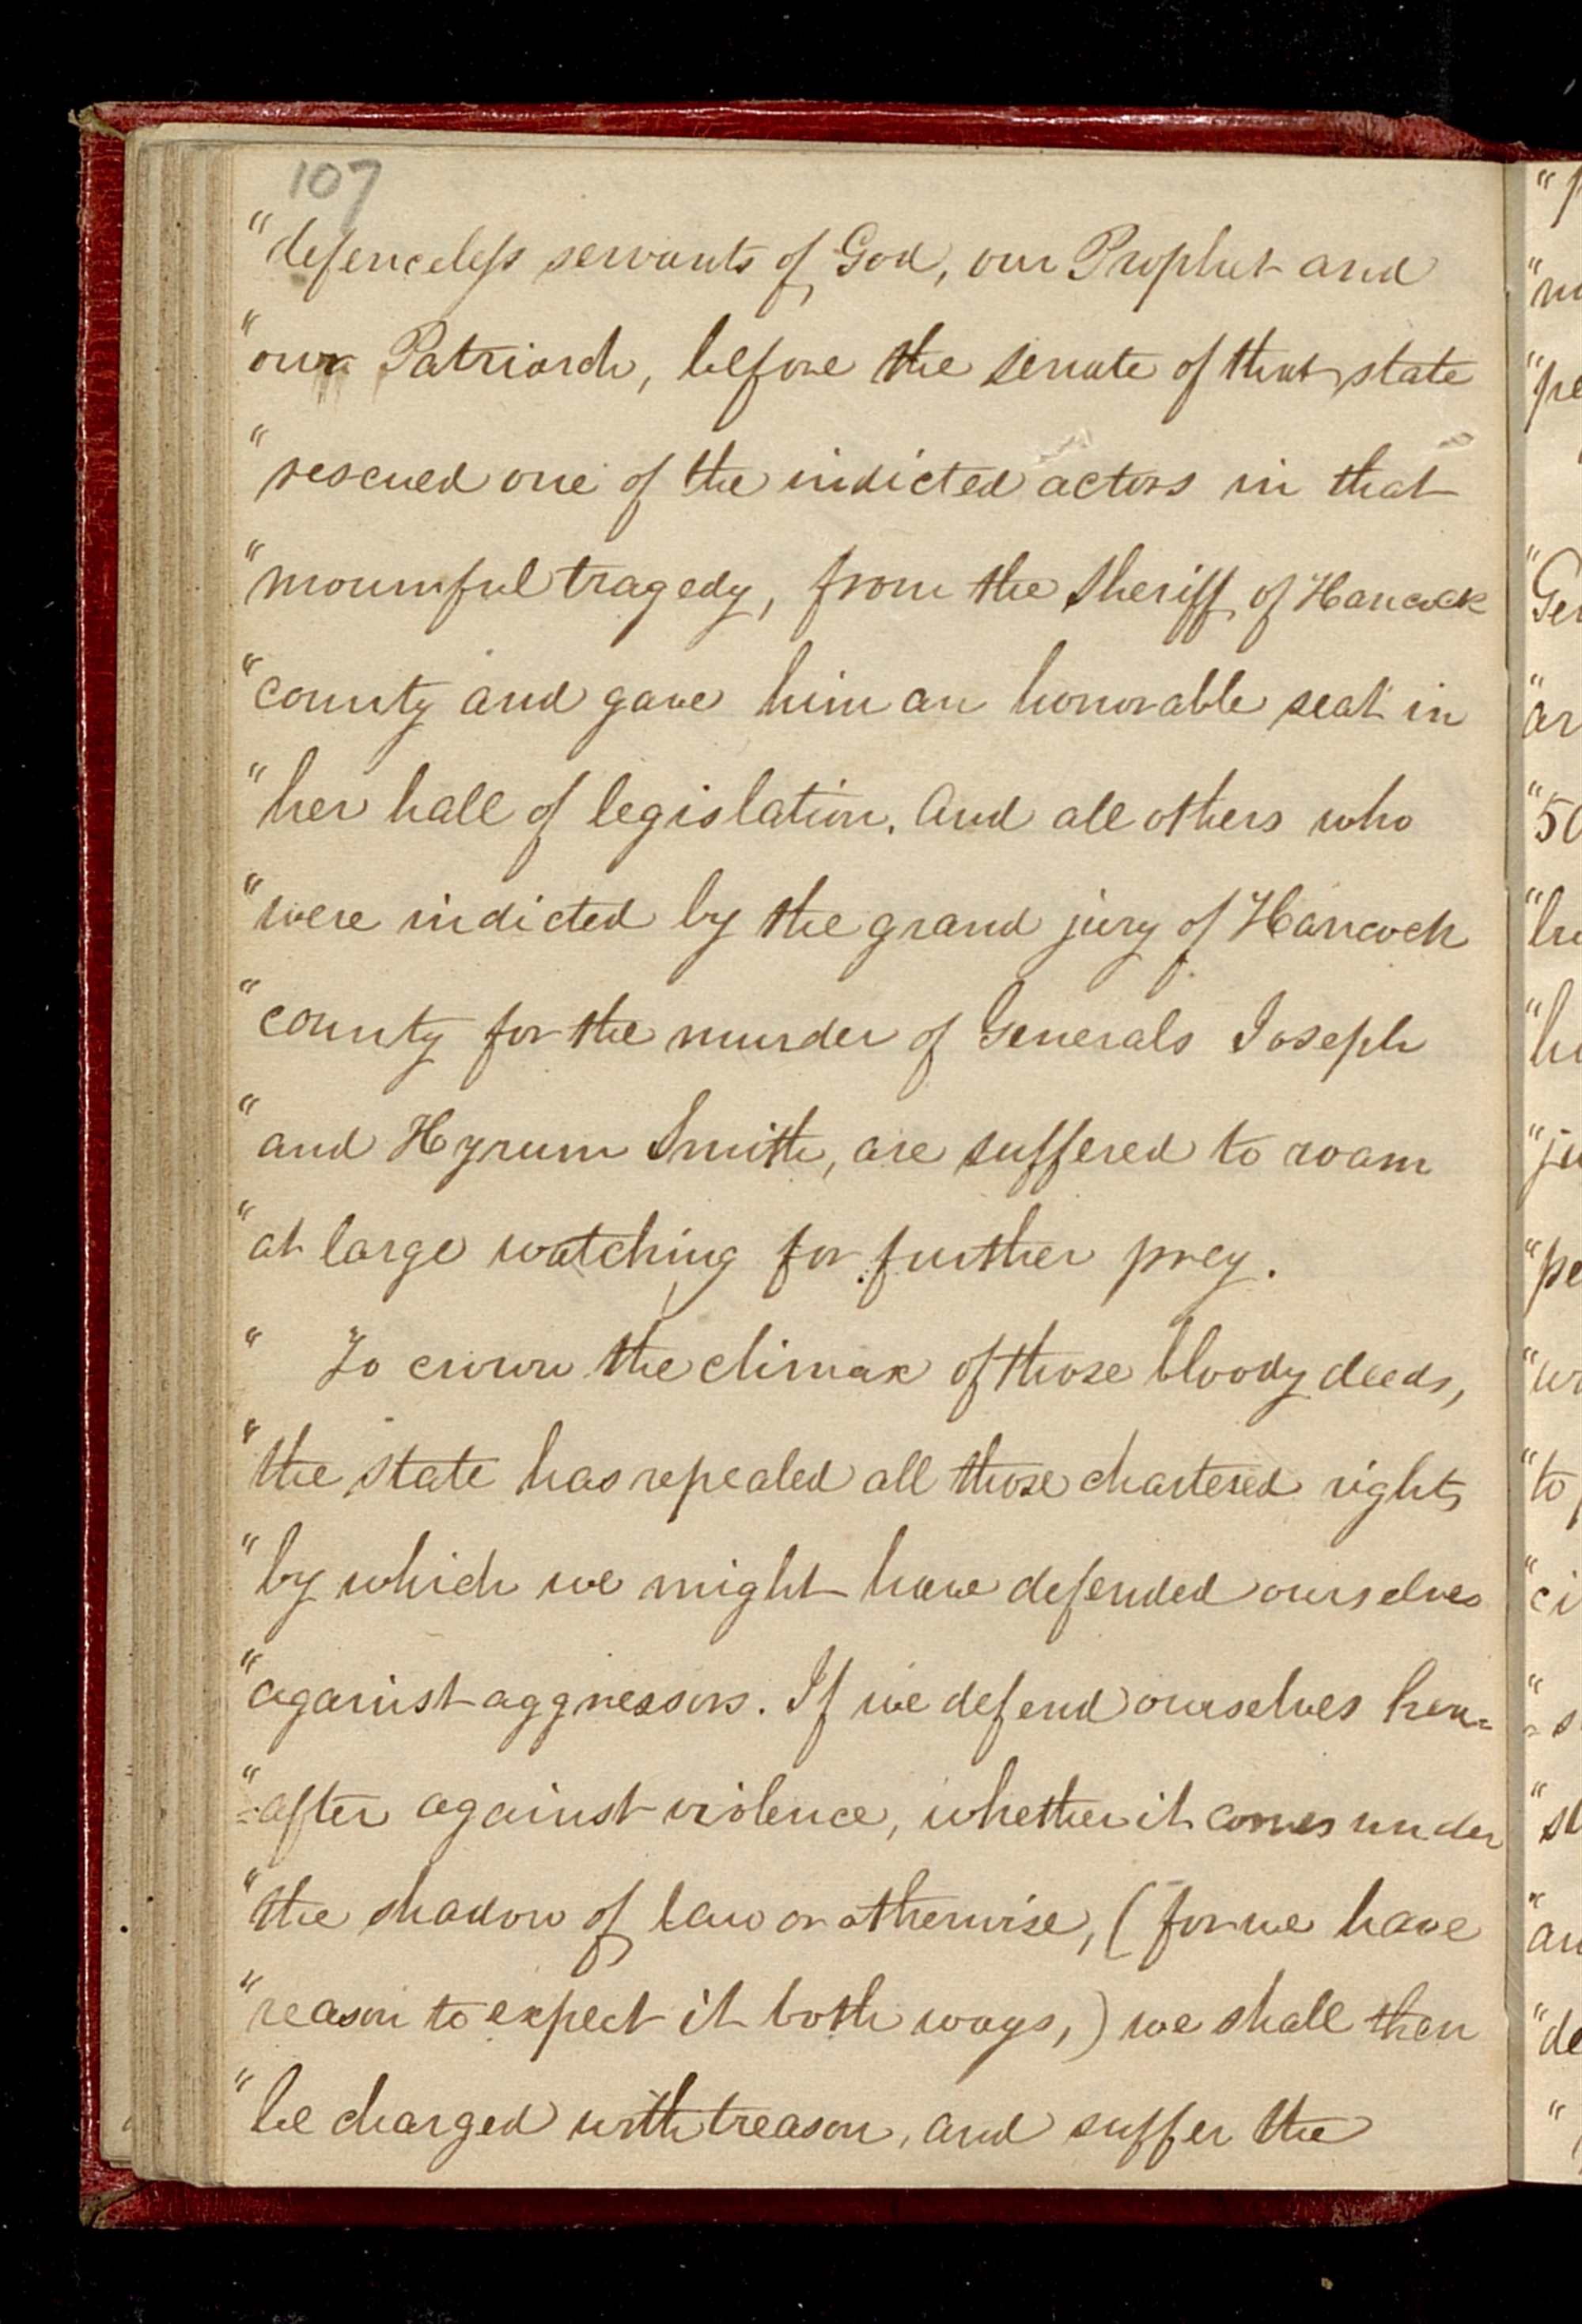 107
"defenceless servants of God, our Prophet and
"our Patriarch, before the senate of that state
"rescued one of the indicted actors in that
"mournful tragedy, from the Sheriff of Hancock
"county and gave him an honorable seat in
"her hall of legislation. And all others who
"were indicted by the grand jury of Hancock
"county for the murder of Generals Joseph
"and Hyrum Smith, are suffered to roam
"at large watching for further prey.
" To crown the climax of those bloody deeds,
"the state has repealed all those chartered rights
"by which we might have defended ourselves
"against aggressors. If we defend ourselves here=
"=after against violence, whether it comes under
"the shadow of law or otherwise, (for we have
"reason to expect it both ways,) we shall then
"be charged with treason, and suffer the